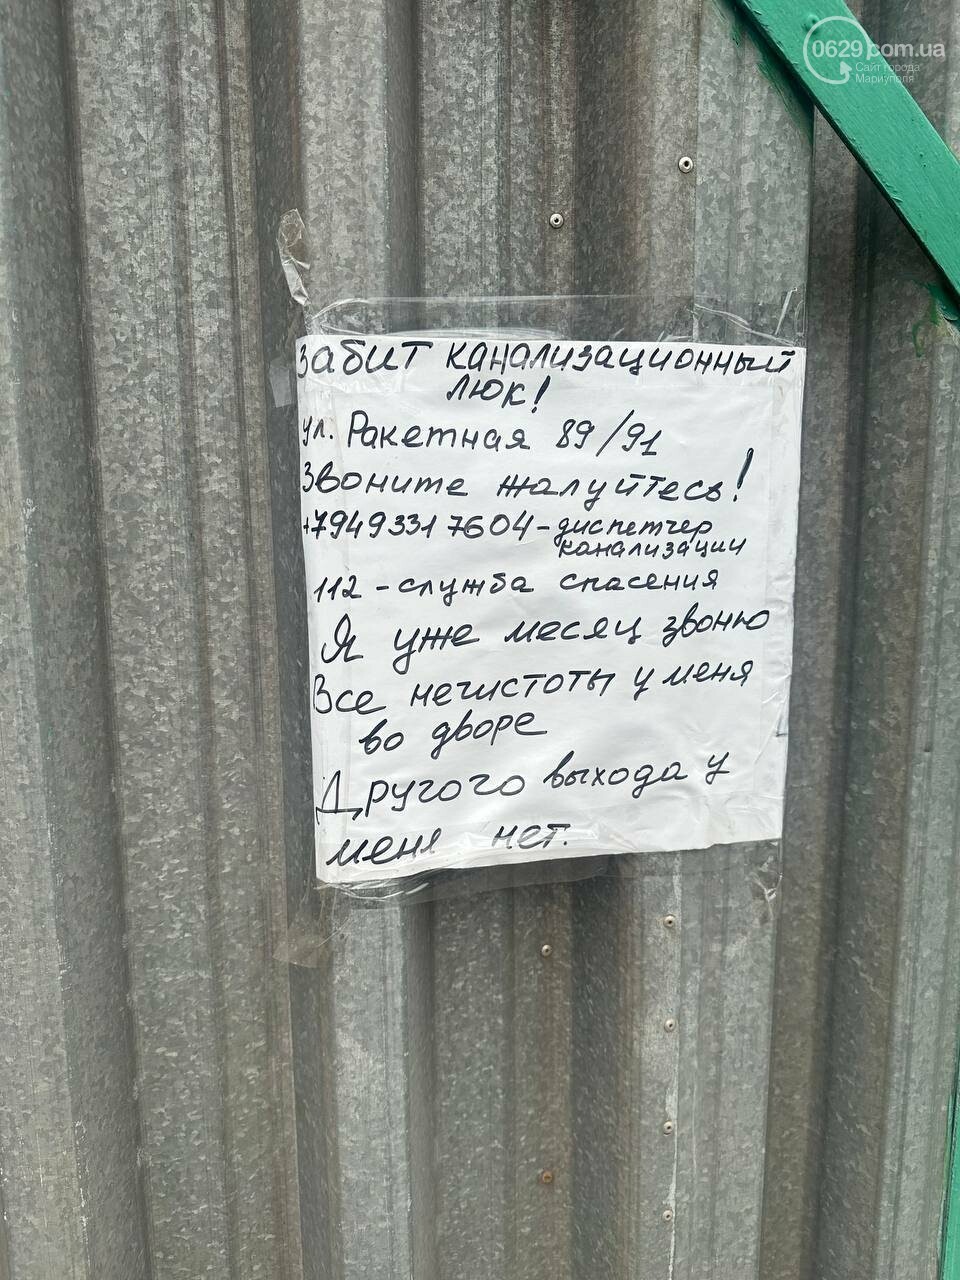 0629.com.ua
Сайт города
Мариуполя
Забит канализационный
люк!
ул. Ракетная 89/91
Звоните жалуйтесь!
+79493317604-диспетчер
канализации
112-служба спасения
Я уже месяц звоню
Все нечистоты у меня
во дворе
Другого выхода у
меня нет.